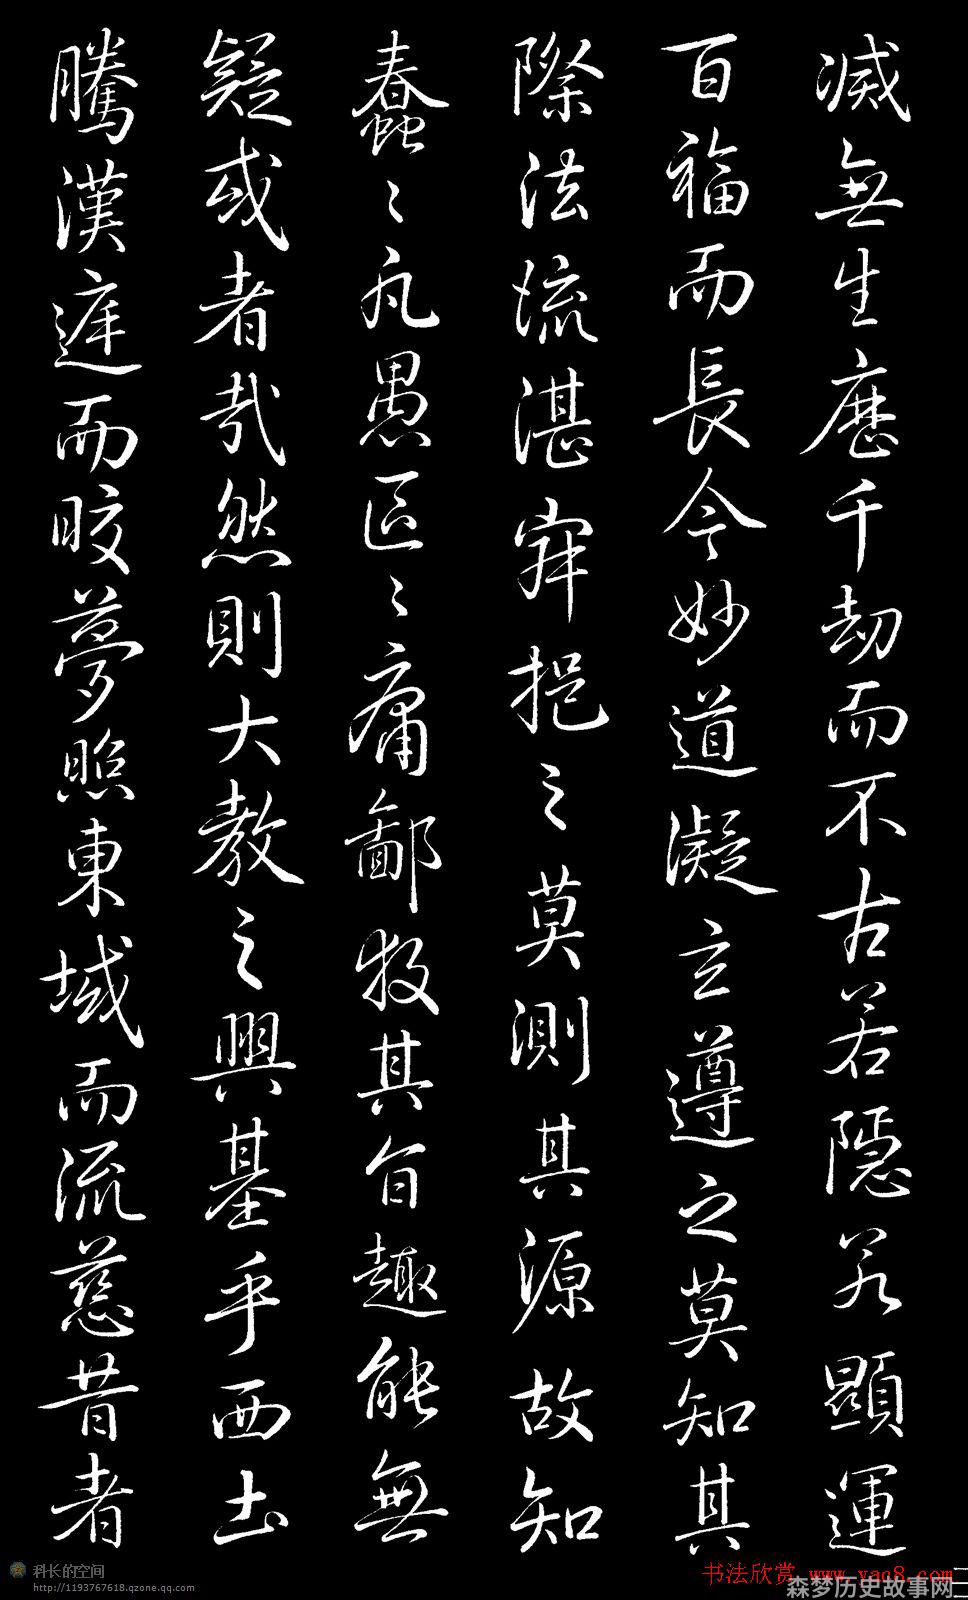 滅無生歷千劫而不古若隱若顯運
百福而長今妙道凝玄遵之莫知其
際法流湛寂挹之莫測其源故知
蠢々凡愚區々庸鄙投其旨趣能無
疑或者哉然則大教之興基乎西土
騰漢庭而皎夢照東域而流慈昔者
科长的空间
http://1193767618.qzone.qq.com
书法欣赏 www.yac8.com
森梦历史故事网